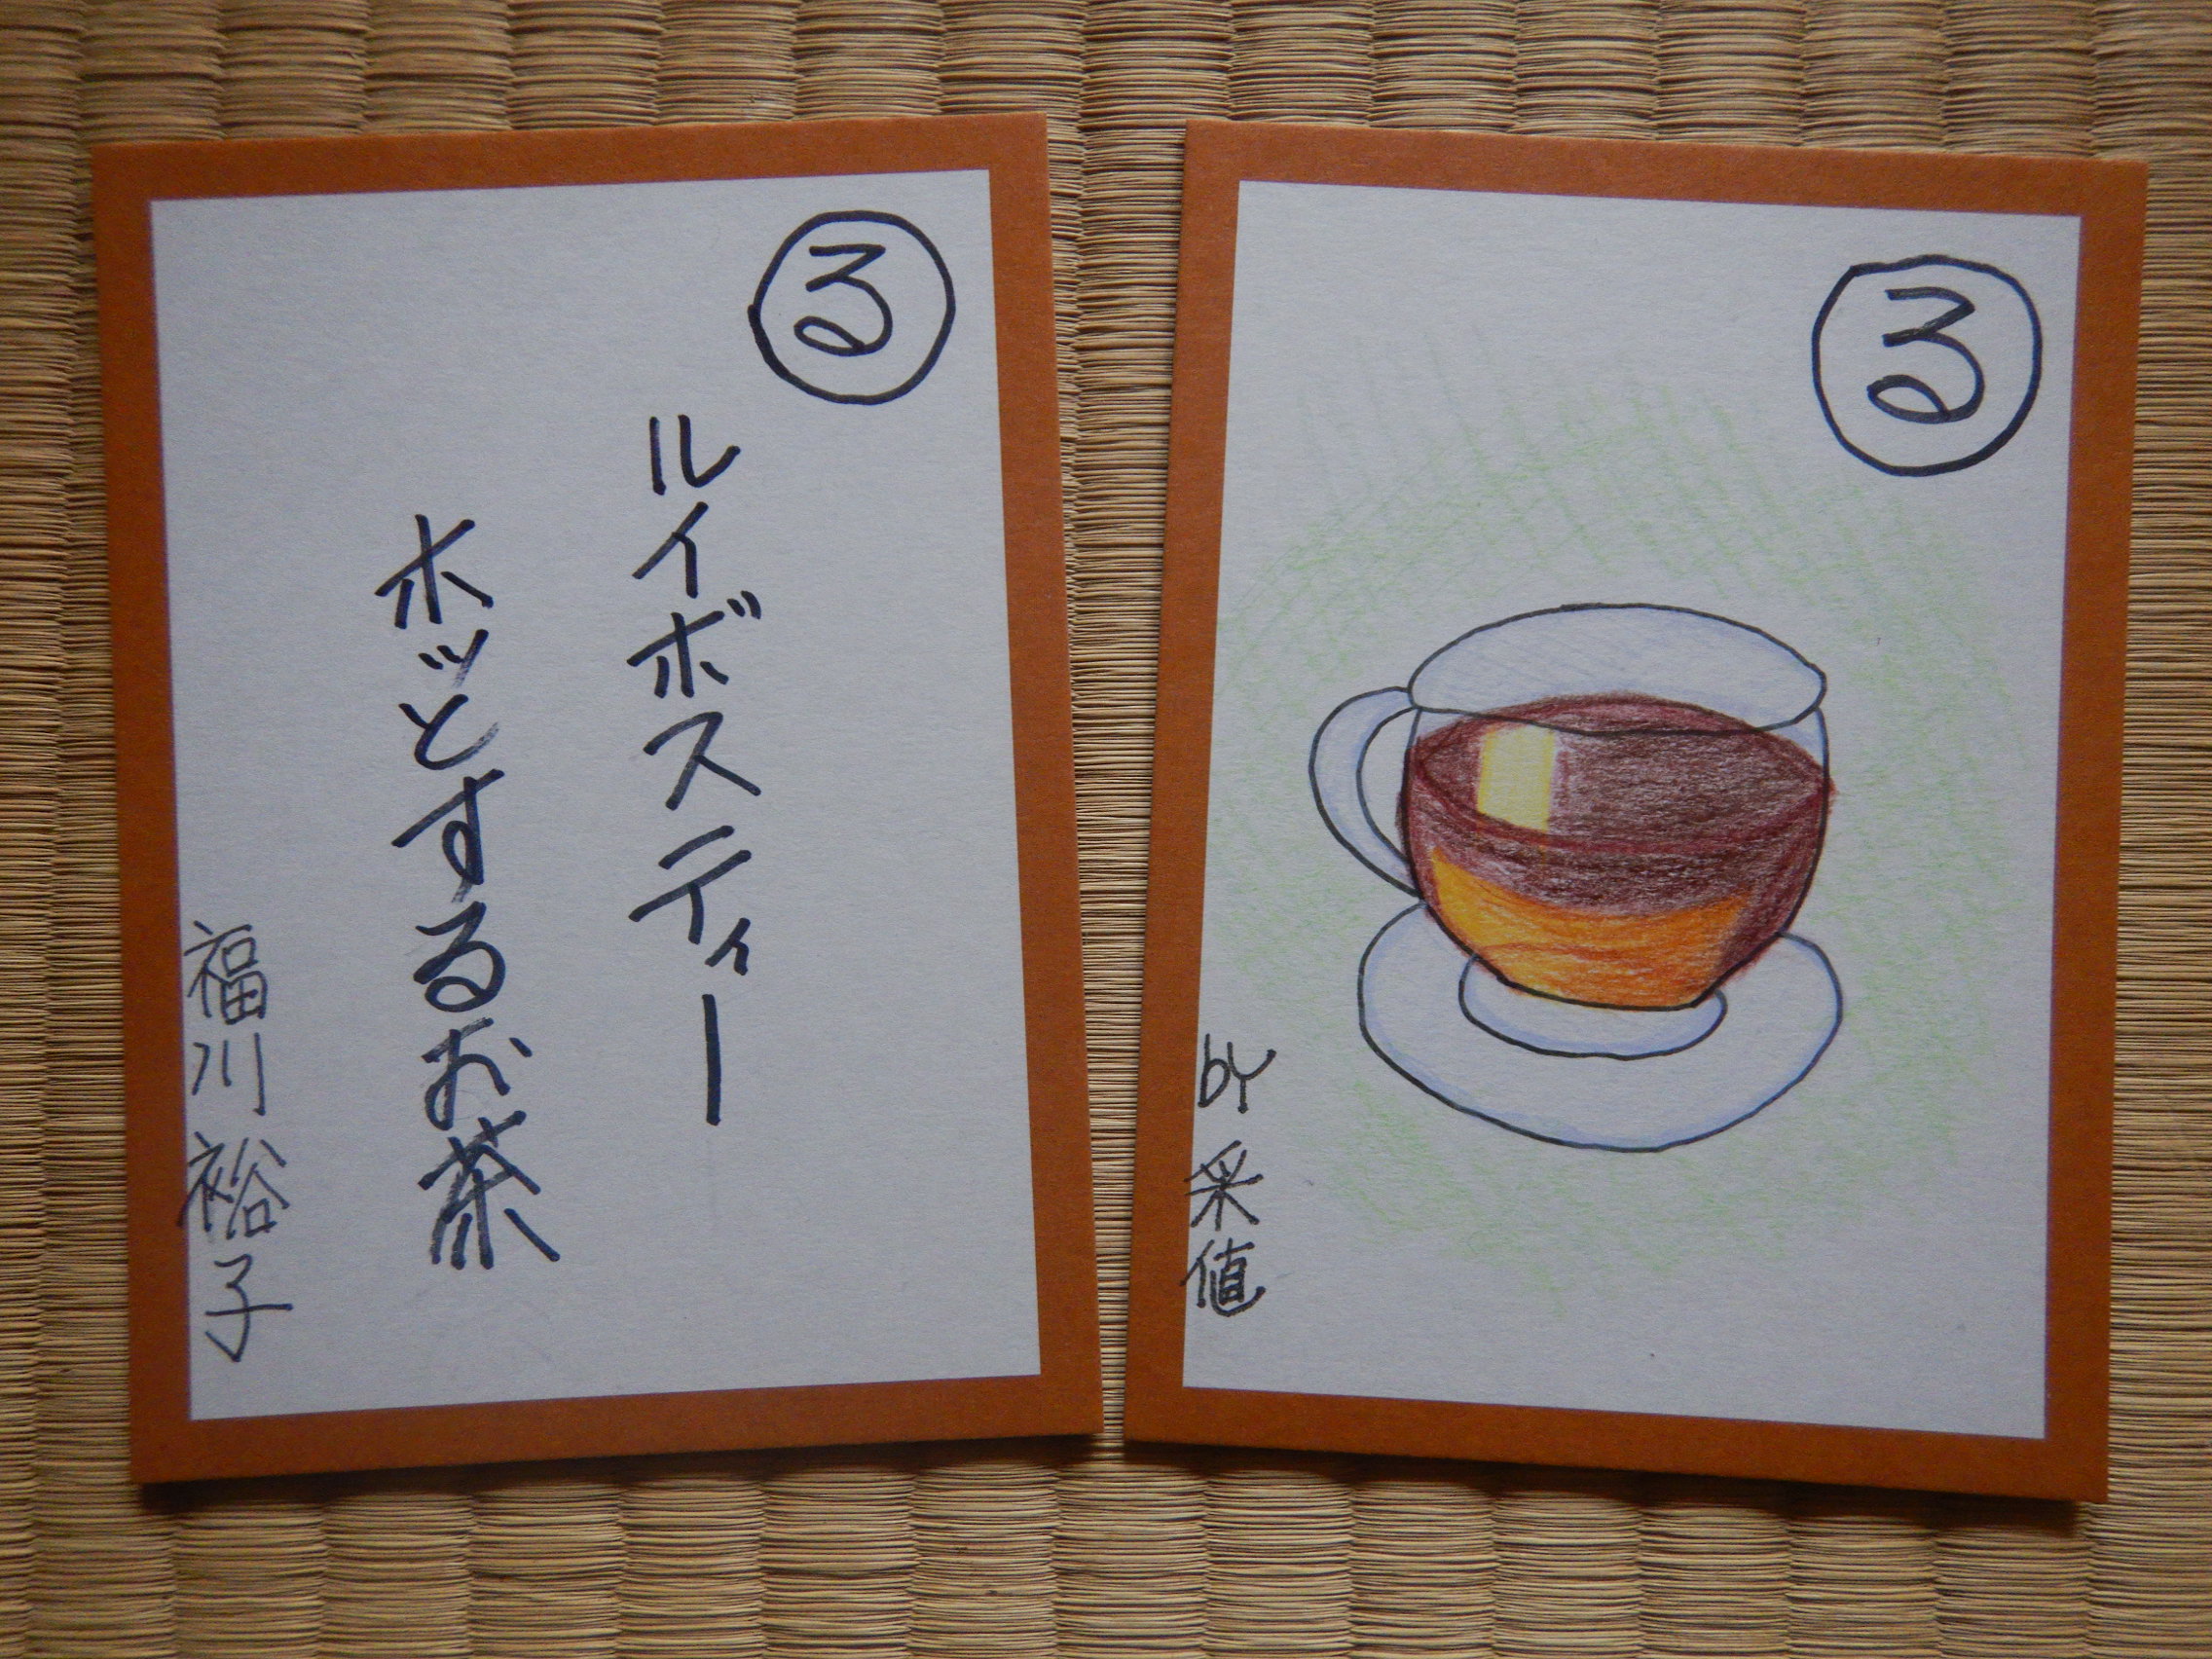 る
ルイボスティー
ホッとするお茶
福川裕子
る
by 采値